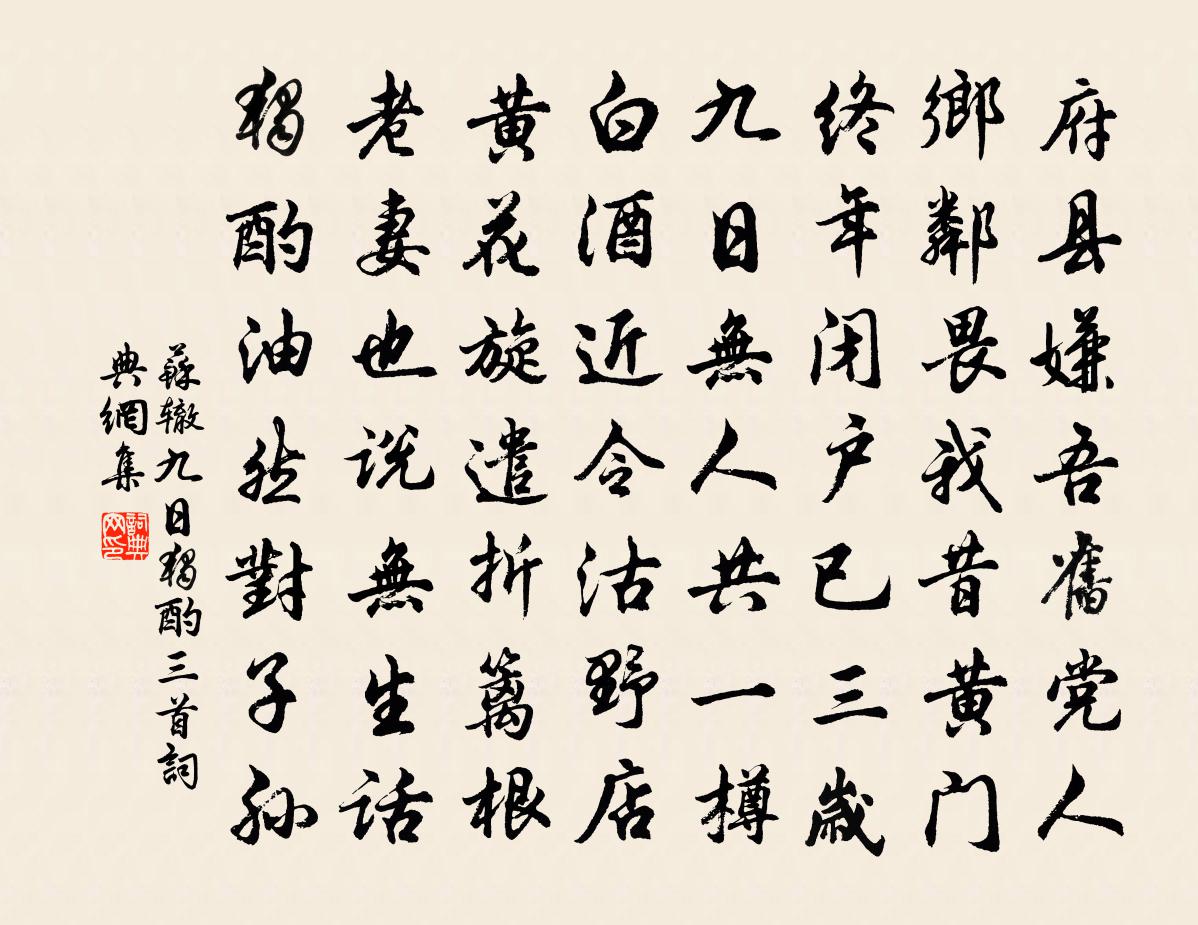 府县嫌吾舊党人
鄉鄰畏我昔黄门
终年闭户已三歲
九日無人共一樽
白酒近令沽野店
黄花旋遣折篱根
老妻也说無生话
獨酌油然對子孙
蘇辙九日獨酌三首詞
典網集
詞典
网印